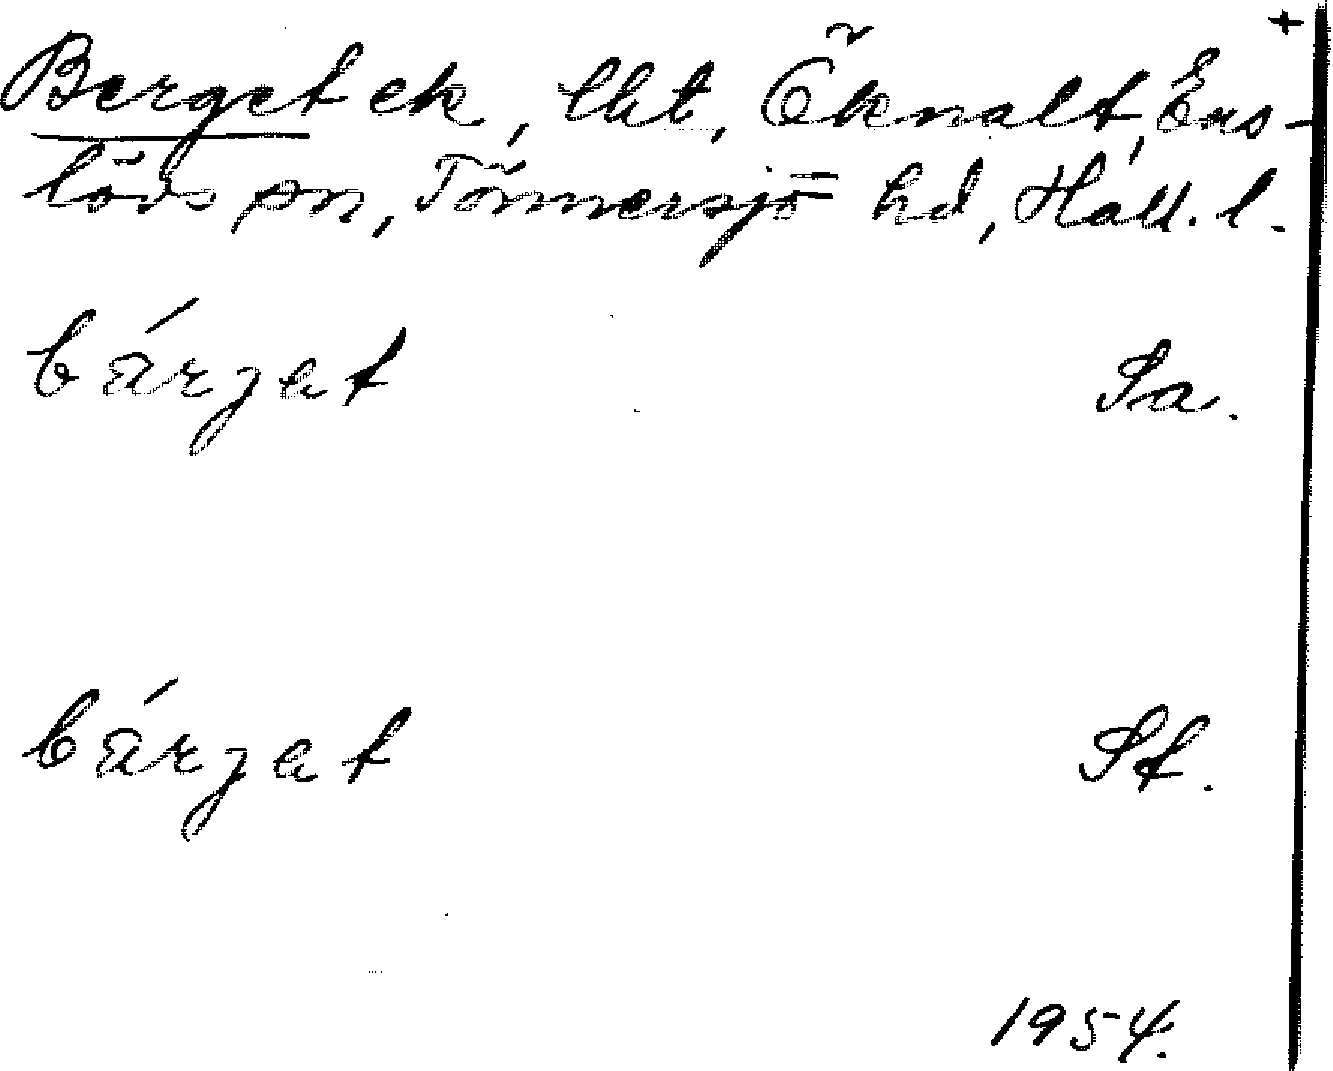 +
Berget ek, lht, Öknalt, Ens-
lövs sn, Tönnersjö hd, Hall. l.
bárjat Sa.
bárjat St.
1954.